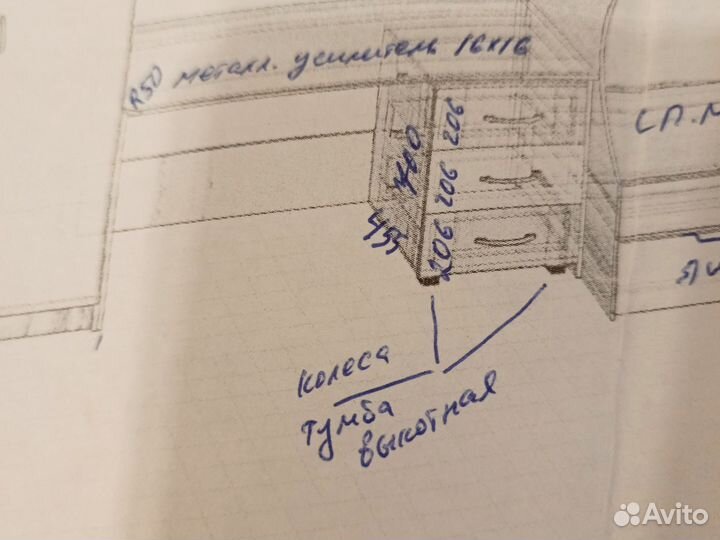 R50 металл. усилитель 16х16
СП.М
206
700
206
455
206
колеса
тумба
выкотная
Avito